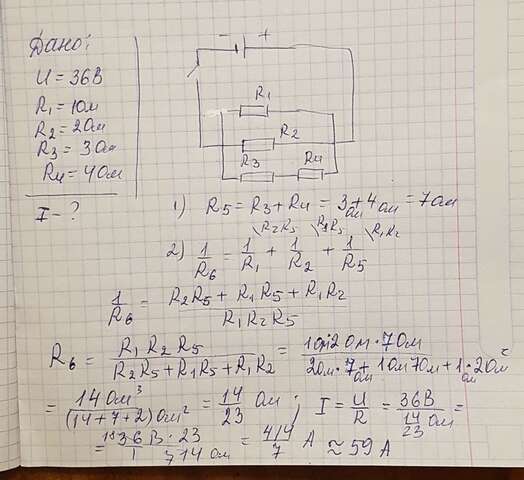 Дано:
U = 36В
R₁ = 1Ом
R₂ = 2Ом
R₃ = 3Ом
R₄ = 4Ом
I - ?
- +
R₁
R₂
R₃ R₄
1) R₅ = R₃ + R₄ = 3Ом + 4Ом = 7Ом
\R₂R₅ \R₁R₅ \R₁R₂
2) 1/R₆ = 1/R₁ + 1/R₂ + 1/R₅
1/R₆ = (R₂R₅ + R₁R₅ + R₁R₂)/(R₁R₂R₅)
R₆ = (R₁R₂R₅)/(R₂R₅ + R₁R₅ + R₁R₂) = (1Ом·2Ом·7Ом)/(2Ом·7Ом + 1Ом·7Ом + 1Ом·2Ом)
= 14Ом³/(14+7+2)Ом² = 14/23 Ом ; I = U/R = 36В/(14/23 Ом) =
= (¹⁸36В·23)/(1·₇14Ом) = 414/7 А ≈ 59 А